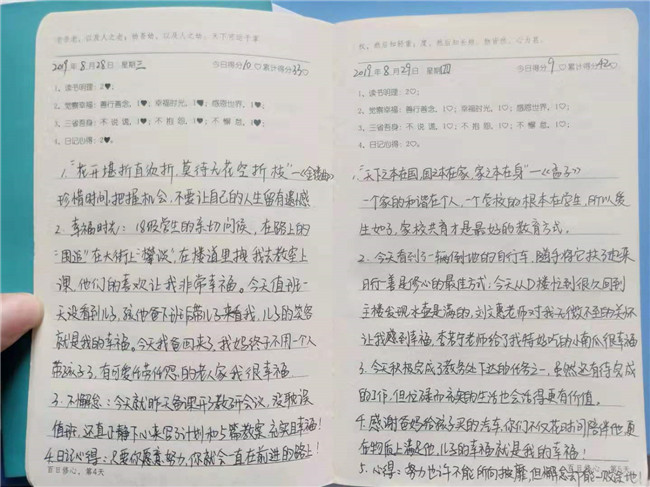 老吾老，以及人之老；幼吾幼，以及人之幼。天下可运于掌
2019年8月28日 星期三
今日得分10♡累计得分33♡
1、读书明理：2♥；
2、觉察幸福：善行善念，1♥；幸福时光，1♥；感恩世界，1♥；
3、三省吾身：不说谎，1♥；不抱怨，1♥；不懈怠，1♥；
4、日记心得：2♥。
1."花开堪折直须折，莫待无花空折枝"—《金缕曲》
珍惜时间，把握机会，不要让自己的人生留有遗憾
2. 幸福时光：18级学生的亲切问候，在路上的
"围追"在大街上"攀谈"，在楼道里拽我去教室上
课，他们的喜欢让我非常幸福。今天值班一
天没看到儿子，孩他爸下班带儿子来看我，儿子的笑容
就是我的幸福。今天我爸回来了，我妈终于不用一个人
带孩子了，有可爱任劳任怨的老人家我很幸福
3. 不懈怠：今天就昨天备课形教研会议，没耽误
值班，还真正静下心来写计划和5篇教案，充实且幸福！
4.日记心得：只要你愿意努力，你就会一直在前进的路上！
百日修心，第4天
权，然后知轻重；度，然后知长短。物皆然，心为甚。
2019年8月29日 星期四
今日得分9♡累计得分42♡
1、读书明理：2♡；
2、觉察幸福：善行善念，1♡；幸福时光，1♡；感恩世界，1♡；
3、三省吾身：不说谎，1♡；不抱怨，1♡；不懈怠，1♡；
4、日记心得：2♡。
1."天下之本在国，国之本在家，家之本在身"—《孟子》
一个家的和谐在个人，一个学校的根本在学生，所以爱
生如子，家校共育才是最好的教育方式。
2. 今天看到了一辆倒地的自行车，随手将它扶了起来
日行一善是修心的最佳方式，今天从D楼忙到很久回到
主楼发现水壶是满的，刘文惠老师对我无微不至的关怀
让我感到幸福，李老师给了我特好吃的小南瓜很幸福
3、今天积极完成了教务处下达的任务之一，虽然还有待完成
的工作，但忙碌而充实的生活也会活得更有价值。
4.感谢爸妈给孩子买的汽车，你们不仅花时间陪伴他，更
在物质上满足他，儿子的幸福就是我的幸福！
5.心得：努力也许不能所向披靡，但懈怠可能一败涂地！
百日修心，第5天